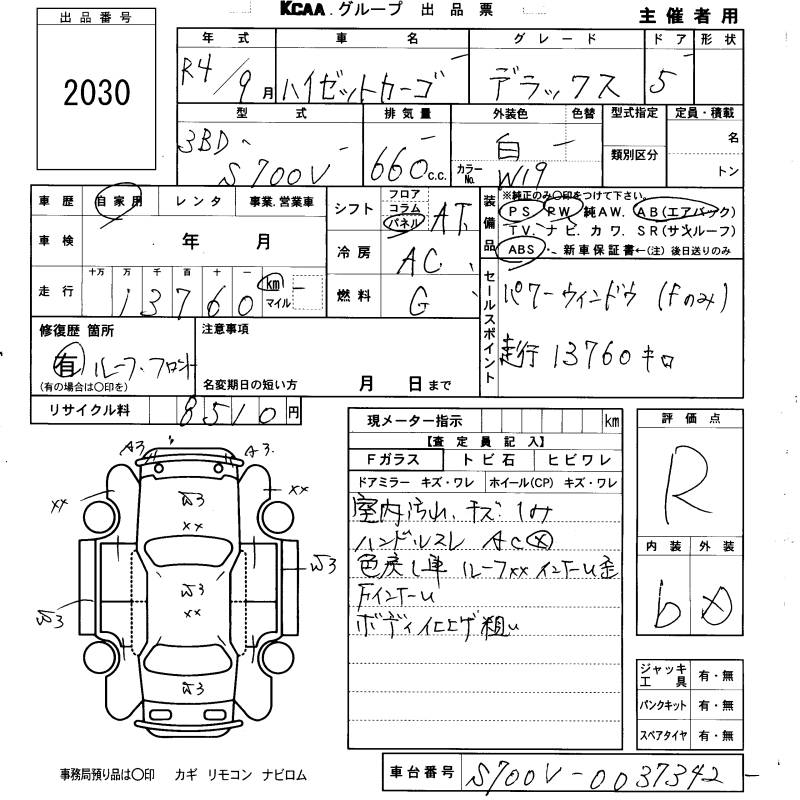 出品番号
2030
KCAA.グループ 出品票
主催者用
年式 車名 グレード ドア 形状
R4/9月 ハイゼットカーゴ デラックス 5
型式 排気量 外装色 色替 型式指定 定員・積載
3BD-S700V 660c.c. 白 カラーNo. W19 類別区分 名 トン
車歴 自家用 レンタ 事業.営業車
車検 年 月
走行 十万 万 千 百 十 一
13760 km マイル
シフト フロア コラム パネル AT
冷房 AC
燃料 G
装備品
※純正のみ○印をつけて下さい。
PS PW 純AW. AB(エアバック)
TV. ナビ. カワ. SR(サンルーフ)
ABS 新車保証書←(注)後日送りのみ
セールスポイント
パワーウィンドウ (Fのみ)
走行 13760キロ
修復歴 箇所
有 ルーフ・フロント
(有の場合は○印を)
注意事項
名変期日の短い方 月 日まで
リサイクル料 8510円
現メーター指示 km
【査定員記入】
Fガラス トビ石 ヒビワレ
ドアミラー キズ・ワレ ホイール(CP) キズ・ワレ
室内汚れ、キズ
ハンドルスレ AC
色戻し車 ルーフxx
ボディ 粗い
評価点
R
内装 外装
b
ジャッキ工具 有・無
パンクキット 有・無
スペアタイヤ 有・無
A3 A3.
xx xx
W3
xx
W3
W3
xx
W3
W3
事務局預り品は○印 カギ リモコン ナビロム
車台番号 S700V-0037342